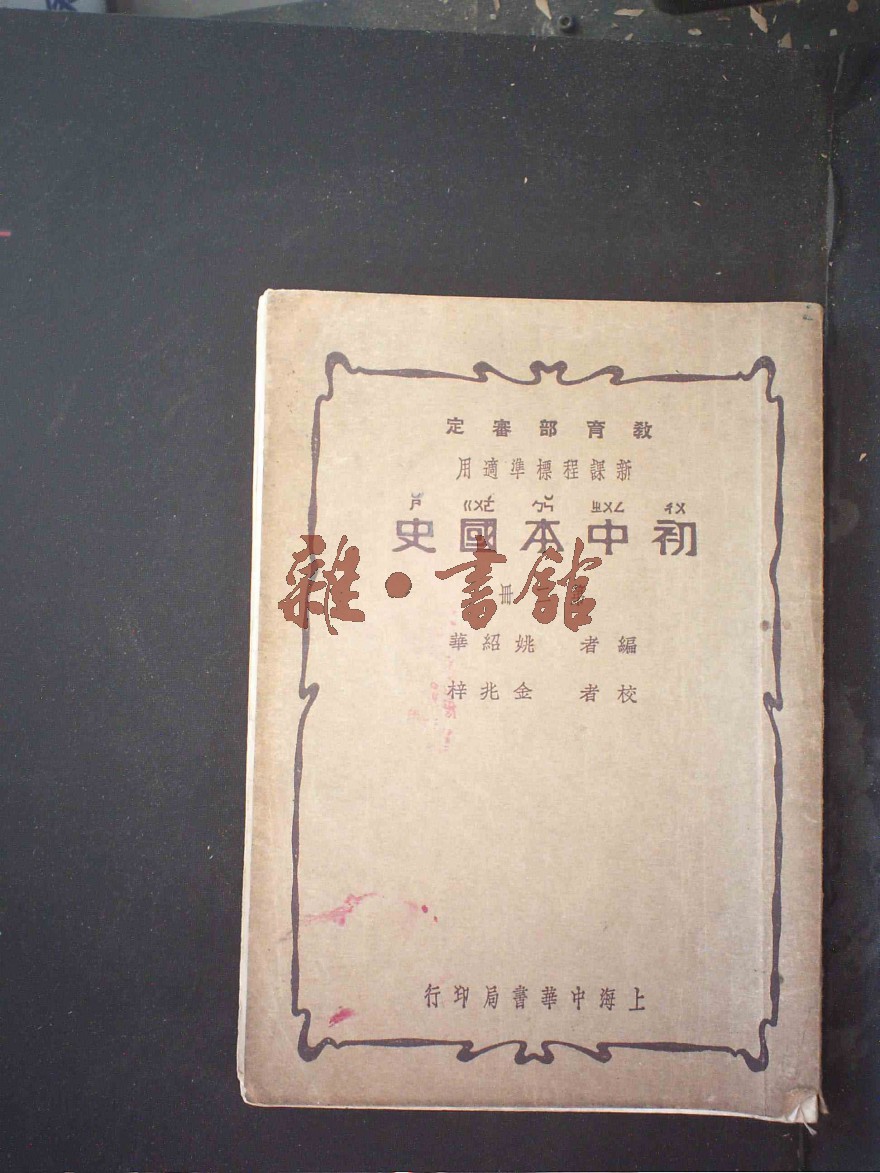 教育部審定
新課程標準適用
ㄔㄨ ㄓㄨㄥ ㄅㄣˇ ㄍㄨㄛˊ ㄕˇ
初中本國史
冊
雜·書館
編者 姚紹華
校者 金兆梓
上海中華書局印行